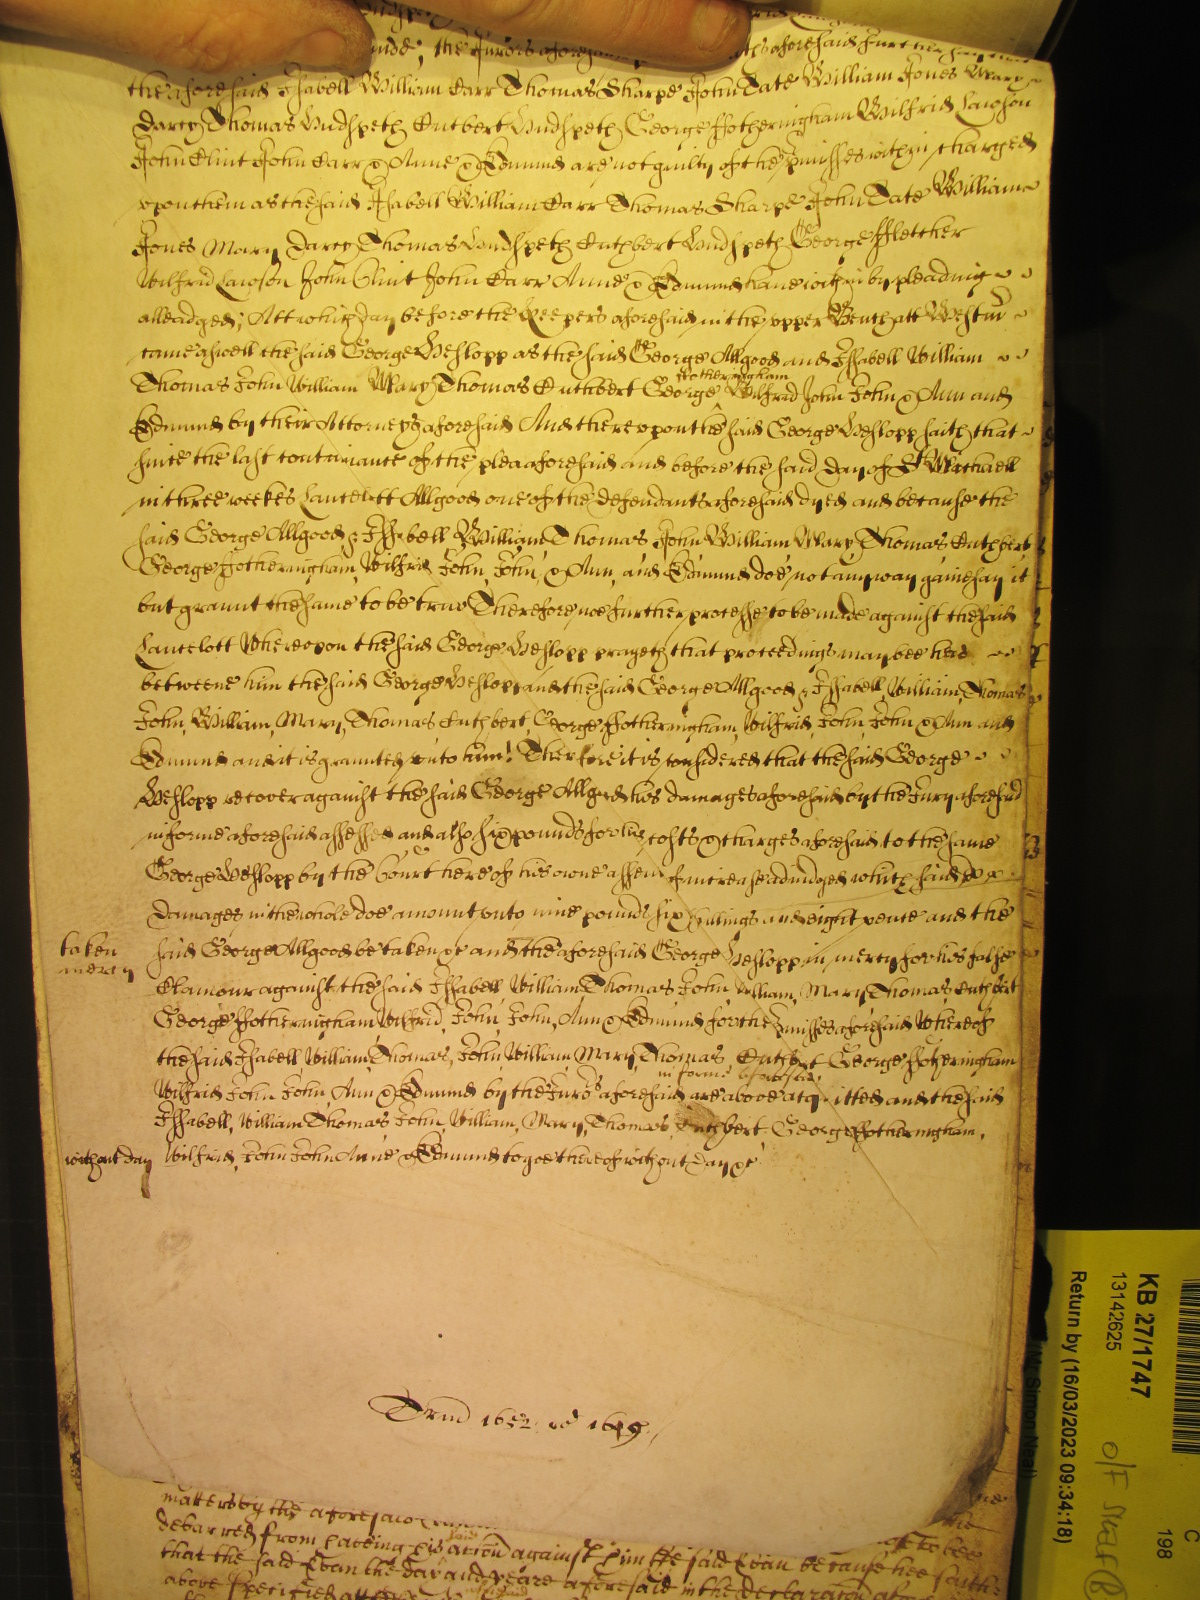 the Jurors aforesaid
aforesaid further say that
the aforesaid Isabell William Carr Thomas Sharpe John Tate William Jones Mary
Darcy Thomas Hudspeth Cutbert Hudspeth George ffotheringham Wilfrid Lawson
John Clint John Carr & Anne & Edmund are not guilty of the pmisses within charged
vpon them as the said Isabell William Carr Thomas Sharpe John Tate William
Jones Mary Darcy Thomas Hudspeth Cuthbert Hudspeth George ffletcher
Wilfrid Lawson John Clint John Carr Anne & Edmund haue within by pleading
alleadged; Att which day before the Keepers aforesaid in the vpper Bench att Westm
came aswell the said George Heslopp as the said George Allgood and Issabell William
Thomas John William Mary Thomas Cuthbert George ffotheringham Wilfrid John John & Ann and
Edmund by their Attorneys aforesaid And therevpon the said George Heslopp saith that
since the last continuance of the plea aforesaid and before the said day of St Michaell
in three weekes Lancelott Allgood one of the defendants aforesaid dyed and because the
said George Allgood & Issabell William Thomas John William Mary Thomas Cuthbert
George ffotheringham, Wilfrid John, John, & Ann, and Edmund doe not any way gainesay it
but graunt the same to be true Therefore noe further processe to be made against the said
Lancelott Whereopon the said George Heslopp prayeth that proceedings may bee here
betweene him the said George Heslopp and the said George Allgood & Issabell, William, Thomas
John, William, Mary, Thomas Cuthbert, George ffotheringham, Wilfrid, John, John & Ann and
Edmund and it is graunted vnto him! Therefore it is considered that the said George
Heslopp recover against the said George Allgood his damages aforesaid by the Jury aforesaid
in forme aforesaid assessed and also six pounds for his costs & charges aforesaid to the same
George Heslopp by the Court here of his owne assent of increase adiudged which said
damages in the whole doe amount vnto nine pounds six shillings and eight pence and the
taken
mercy
said George Allgood be taken &c and the aforesaid George Heslopp in mercy for his false
Clamour against the said Issabell William Thomas John William, Mary Thomas Cuthbert
George ffotheringham Wilfrid, John John, Ann & Edmund for the pmisses aforesaid Whereof
the said Isabell William Thomas, John William Mary Thomas, Cuthbert George ffotheringham
Wilfrid John John Ann & Edmund by the Jurors aforesaid in forme aforesaid are above acquitted and the said
Issabell, William Thomas John, William, Mary, Thomas, Cuthbert George ffotheringham,
without day
Wilfrid, John John Anne & Edmund to goe thereof without day &c
Trin 1652 ro 1649
matters by the aforesaid
to bee
debarred from haveing his accon against him the said Evan because hee saith
that the said Evan the day and yeare aforesaid in the declaracon
above specified
KB 27/1747
13142625
Return by (16/03/2023 09:34:18)
Simon Neal
C
198